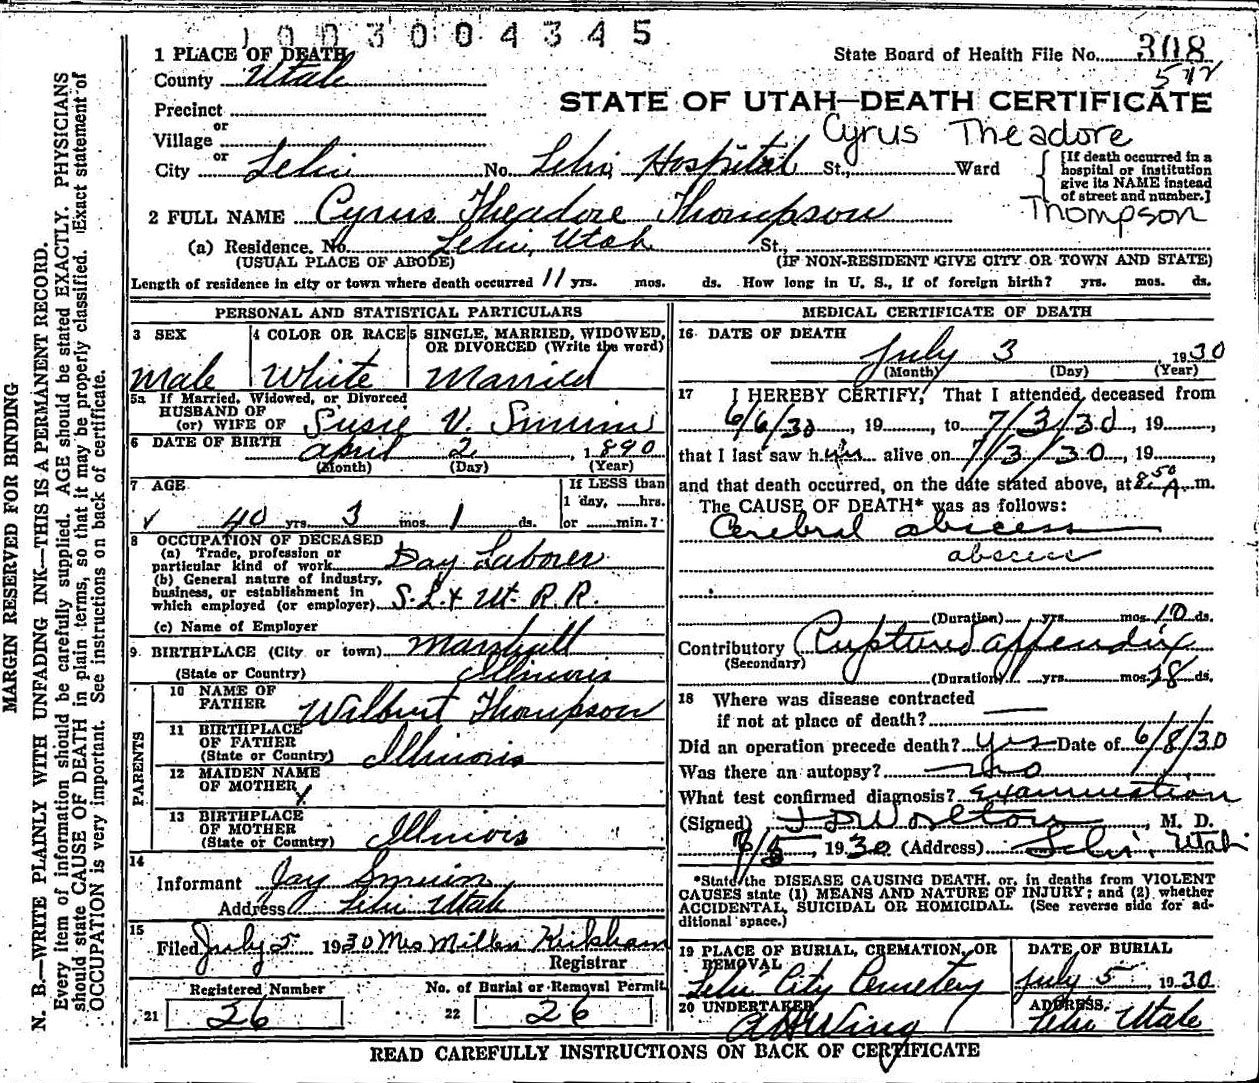 1003004345
1 PLACE OF DEATH
State Board of Health File No. 308
572
County Utah
STATE OF UTAH—DEATH CERTIFICATE
Precinct
Cyrus Theadore
or
Village
or
City Lehi No. Lehi Hospital St., Ward
[If death occurred in a
hospital or institution
give its NAME instead
of street and number.]
Thompson
2 FULL NAME Cyrus Theadore Thompson
(a) Residence, No. Lehi, Utah St.,
(USUAL PLACE OF ABODE) (IF NON-RESIDENT GIVE CITY OR TOWN AND STATE)
Length of residence in city or town where death occurred 11 yrs. mos. ds. How long in U. S., if of foreign birth? yrs. mos. ds.
PERSONAL AND STATISTICAL PARTICULARS
3 SEX
Male
4 COLOR OR RACE
White
5 SINGLE, MARRIED, WIDOWED,
OR DIVORCED (Write the word)
Married
5a If Married, Widowed, or Divorced
HUSBAND OF
(or) WIFE OF Susie V.
6 DATE OF BIRTH April 2, 1890
(Month) (Day) (Year)
7 AGE
If LESS than
1 day, hrs.
40 yrs. 3 mos. 1 ds. or min.?
8 OCCUPATION OF DECEASED
(a) Trade, profession or
particular kind of work Day Laborer
(b) General nature of industry,
business, or establishment in
which employed (or employer) S. L. & Ut. R. R.
(c) Name of Employer
9 BIRTHPLACE (City or town) Marshall
(State or Country) Illinois
PARENTS
10 NAME OF
FATHER Wilburt Thompson
11 BIRTHPLACE
OF FATHER
(State or Country) Illinois
12 MAIDEN NAME
OF MOTHER
13 BIRTHPLACE
OF MOTHER
(State or Country) Illinois
14
Informant Jay
Address Lehi Utah
15
Filed July 5 1930 Mrs
Registrar
Registered Number
21 26
No. of Burial or Removal Permit
22 26
MEDICAL CERTIFICATE OF DEATH
16 DATE OF DEATH
July 3, 1930
(Month) (Day) (Year)
17 I HEREBY CERTIFY, That I attended deceased from
6/6/30, 19, to 7/3/30, 19,
that I last saw him alive on 7/3/30, 19,
and that death occurred, on the date stated above, at 8:50 A. m.
The CAUSE OF DEATH* was as follows:
Cerebral abscess
abscess
(Duration) yrs. mos. 10 ds.
Contributory Ruptured appendix
(Secondary)
(Duration) yrs. mos. 28 ds.
18 Where was disease contracted
if not at place of death?
Did an operation precede death? yes Date of 6/8/30
Was there an autopsy? no
What test confirmed diagnosis? examination
(Signed) M. D.
1930 (Address) Lehi, Utah
*State the DISEASE CAUSING DEATH, or, in deaths from VIOLENT
CAUSES state (1) MEANS AND NATURE OF INJURY; and (2) whether
ACCIDENTAL, SUICIDAL OR HOMICIDAL. (See reverse side for ad-
ditional space.)
19 PLACE OF BURIAL, CREMATION, OR
REMOVAL
Lehi City Cemetery
DATE OF BURIAL
July 5 1930
20 UNDERTAKER
A H Wing
ADDRESS
Lehi Utah
READ CAREFULLY INSTRUCTIONS ON BACK OF CERTIFICATE
MARGIN RESERVED FOR BINDING
N. B.—WRITE PLAINLY WITH UNFADING INK—THIS IS A PERMANENT RECORD.
Every item of information should be carefully supplied. AGE should be stated EXACTLY. PHYSICIANS
should state CAUSE OF DEATH in plain terms, so that it may be properly classified. Exact statement of
OCCUPATION is very important. See instructions on back of certificate.